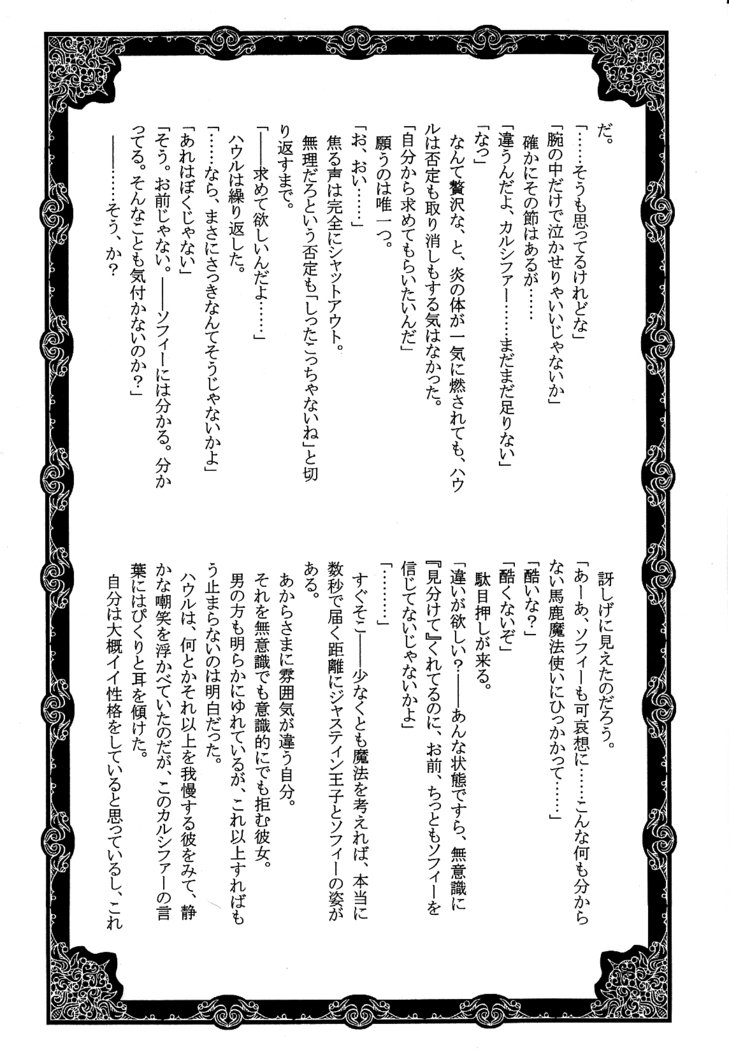 だ。
「……そうも思ってるけれどな」
「腕の中だけで泣かせりゃいいじゃないか」
確かにその節はあるが……
「違うんだよ、カルシファー……まだまだ足りない」
「なっ」
なんて贅沢な、と、炎の体が一気に燃されても、ハウ
ルは否定も取り消しもする気はなかった。
「自分から求めてもらいたいんだ」
願うのは唯一つ。
「お、おい……」
焦る声は完全にシャットアウト。
無理だろという否定も「しったこっちゃないね」と切
り返すまで。
「――求めて欲しいんだよ……」
ハウルは繰り返した。
「……なら、まさにさっきなんてそうじゃないかよ」
「あれはぼくじゃない」
「そう。お前じゃない。――ソフィーには分かる。分か
ってる。そんなことも気付かないのか?」
――……そう、か?
訝しげに見えたのだろう。
「あーあ、ソフィーも可哀想に……こんな何も分から
ない馬鹿魔法使いにひっかかって……」
「酷いな?」
「酷くないぞ」
駄目押しが来る。
「違いが欲しい?――あんな状態ですら、無意識に
『見分けて』くれてるのに、お前、ちっともソフィーを
信じてないじゃないかよ」
「………」
すぐそこ――少なくとも魔法を考えれば、本当に
数秒で届く距離にジャスティン王子とソフィーの姿が
ある。
あからさまに雰囲気が違う自分。
それを無意識でも意識的にでも拒む彼女。
男の方も明らかにゆれているが、これ以上すればも
う止まらないのは明白だった。
ハウルは、何とかそれ以上を我慢する彼をみて、静
かな嘲笑を浮かべていたのだが、このカルシファーの言
葉にはぴくりと耳を傾けた。
自分は大概イイ性格をしていると思っているし、これ